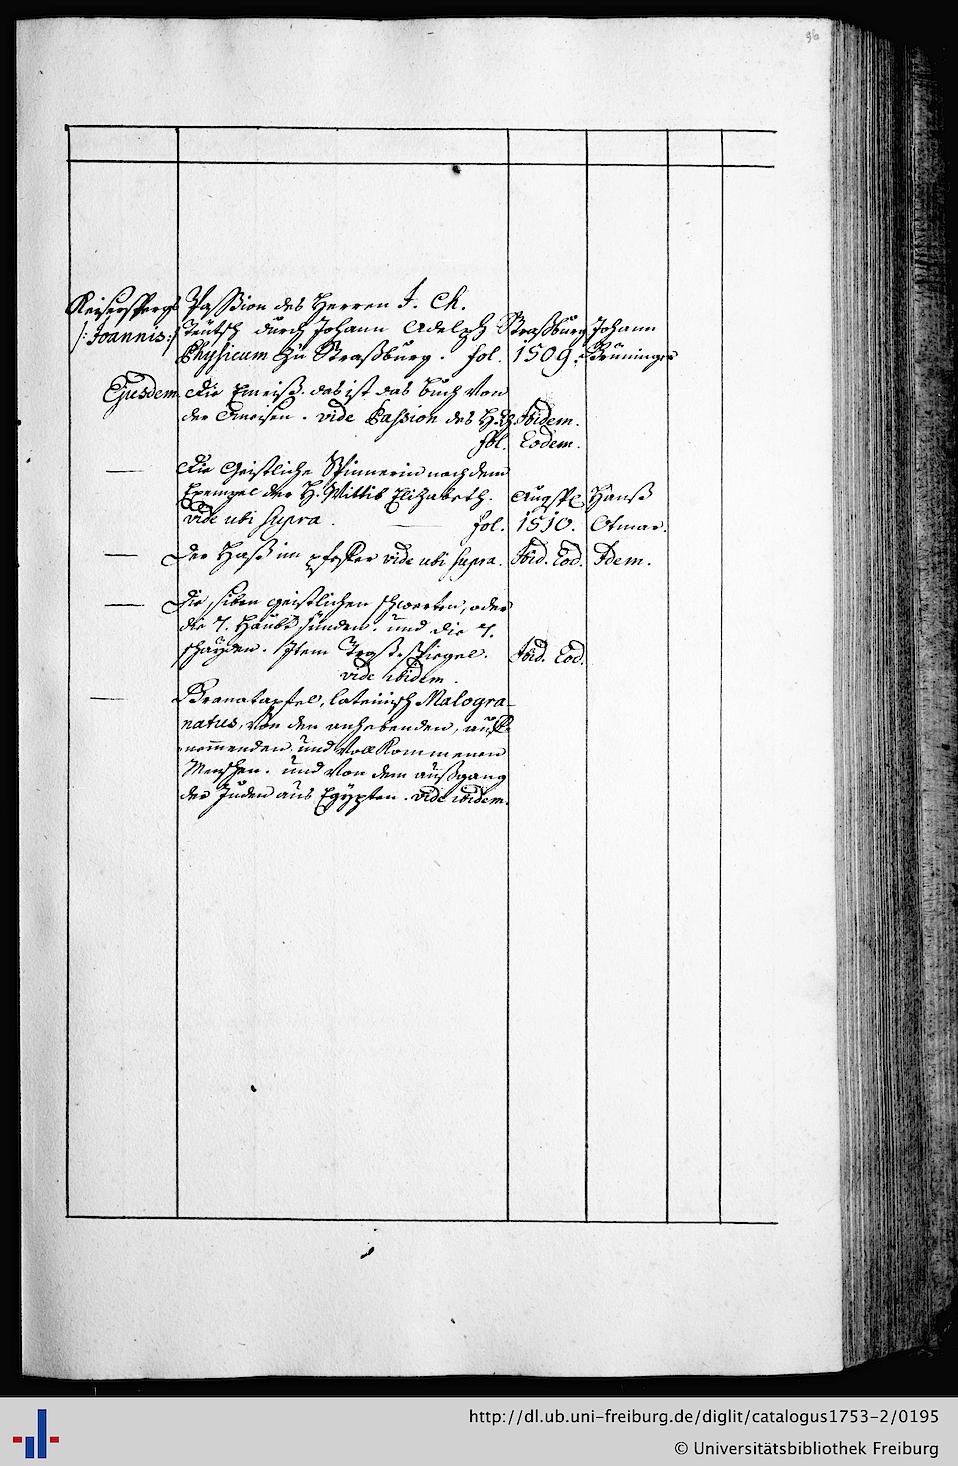 96
Keisersperg Passion des Herren J. Ch.
/: Joannis :/ Teutsch durch Johann Adelph Straßburg Johann
Physicum zu Straßburg. fol. 1509. Grüninger
Ejusdem Die Emeiß. das ist das buch von
der Ameisen. vide Passion des H. Ibidem.
fol. Eodem.
— Die Geistliche Spinnerin nach dem
Exempel der H. Wittib Elizabeth. Augsp. Hanß
vide ubi supra. — fol. 1510. Otmar.
— Der Haß im pfeffer vide ubi supra. Ibid. Eod. Idem.
— Die siben geistlichen schwerter, oder
die 7. Haubt sünden. und die 7.
schayden. Item Spiegel. Ibid. Eod.
vide ibidem.
— Granatapfel, lateinisch Malogra-
natus, von den anhebenden, auff-
nemmenden und Vollkommenen
Menschen. und von dem außgang
der Juden aus Egypten. vide ibidem.
http://dl.ub.uni-freiburg.de/diglit/catalogus1753-2/0195
© Universitätsbibliothek Freiburg